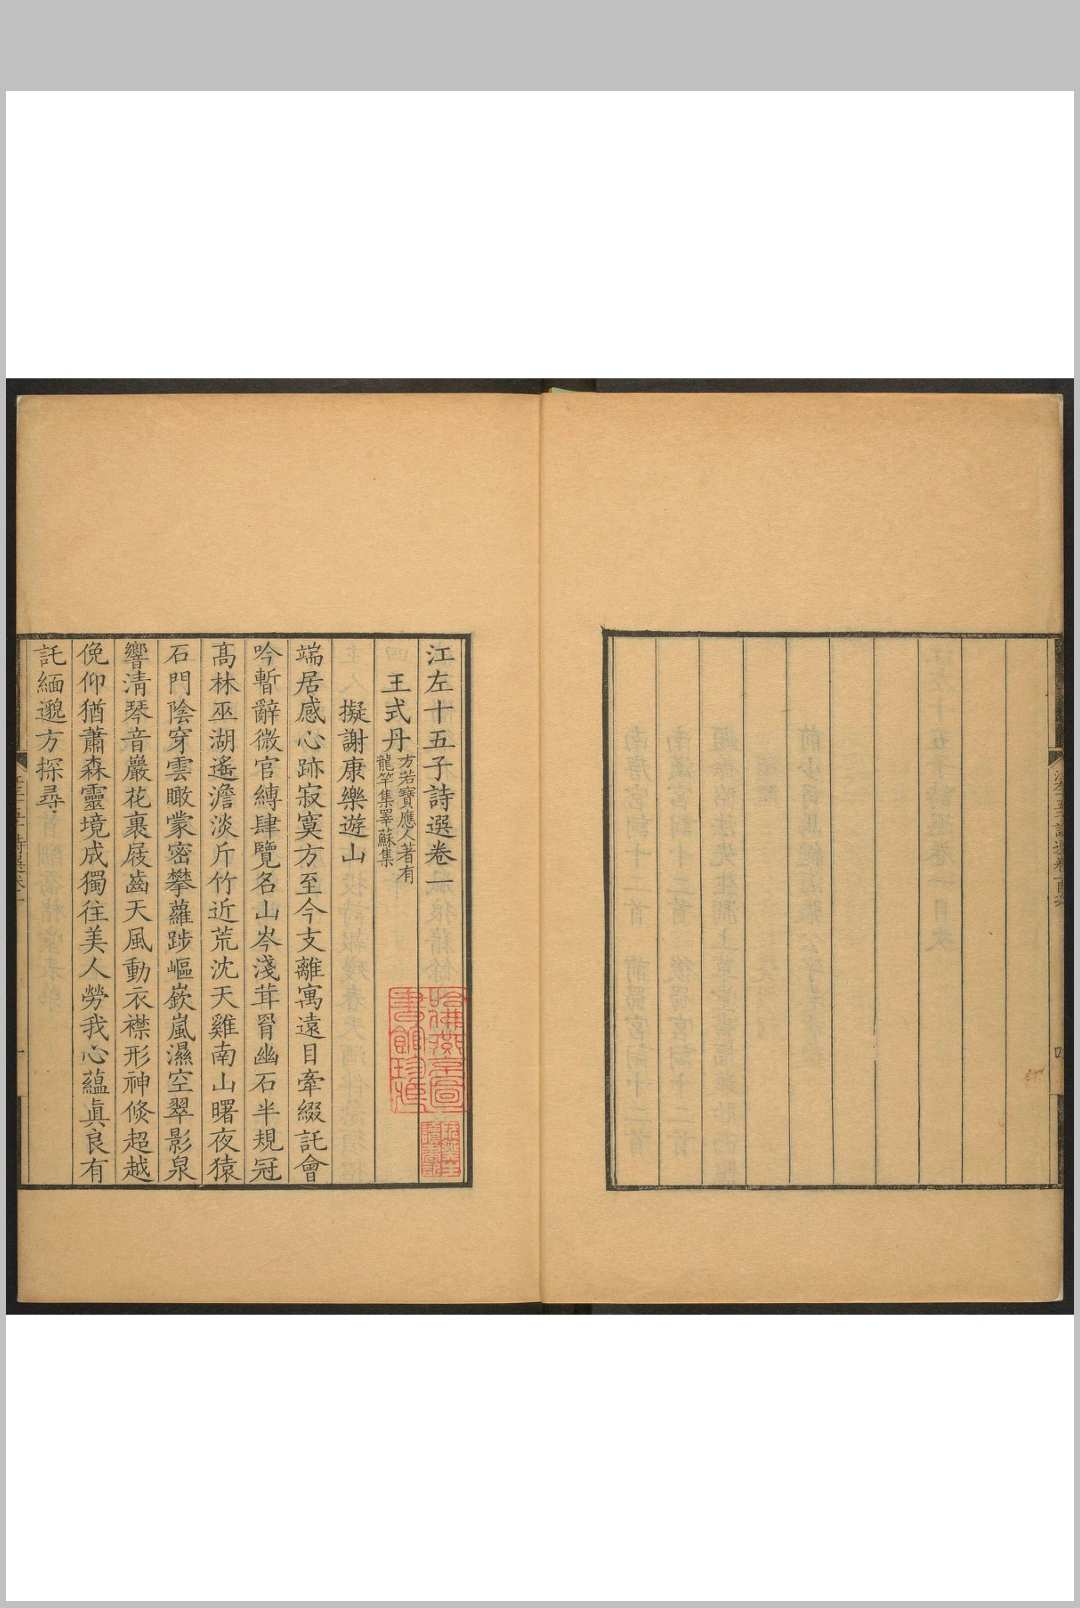 江左十五子詩選卷一
王式丹 方若寶應人著有
龍竿集罨蘇集
擬謝康樂遊山
端居感心跡寂寞方至今支離寓遠目牽綴託會
吟暫辭微官縛肆覽名山岑淺茸罥幽石半規冠
髙林巫湖遙澹淡斤竹近荒沈天雞南山曙夜猿
石門陰穿雲瞰蒙密攀蘿踄嶇嶔嵐濕空翠影泉
響清琴音巖花裹屐齒天風動衣襟形神倏超越
俛仰猶蕭森靈境成獨往美人勞我心蘊眞良有
託緬邈方探尋
哈佛燕京圖
書館珍藏